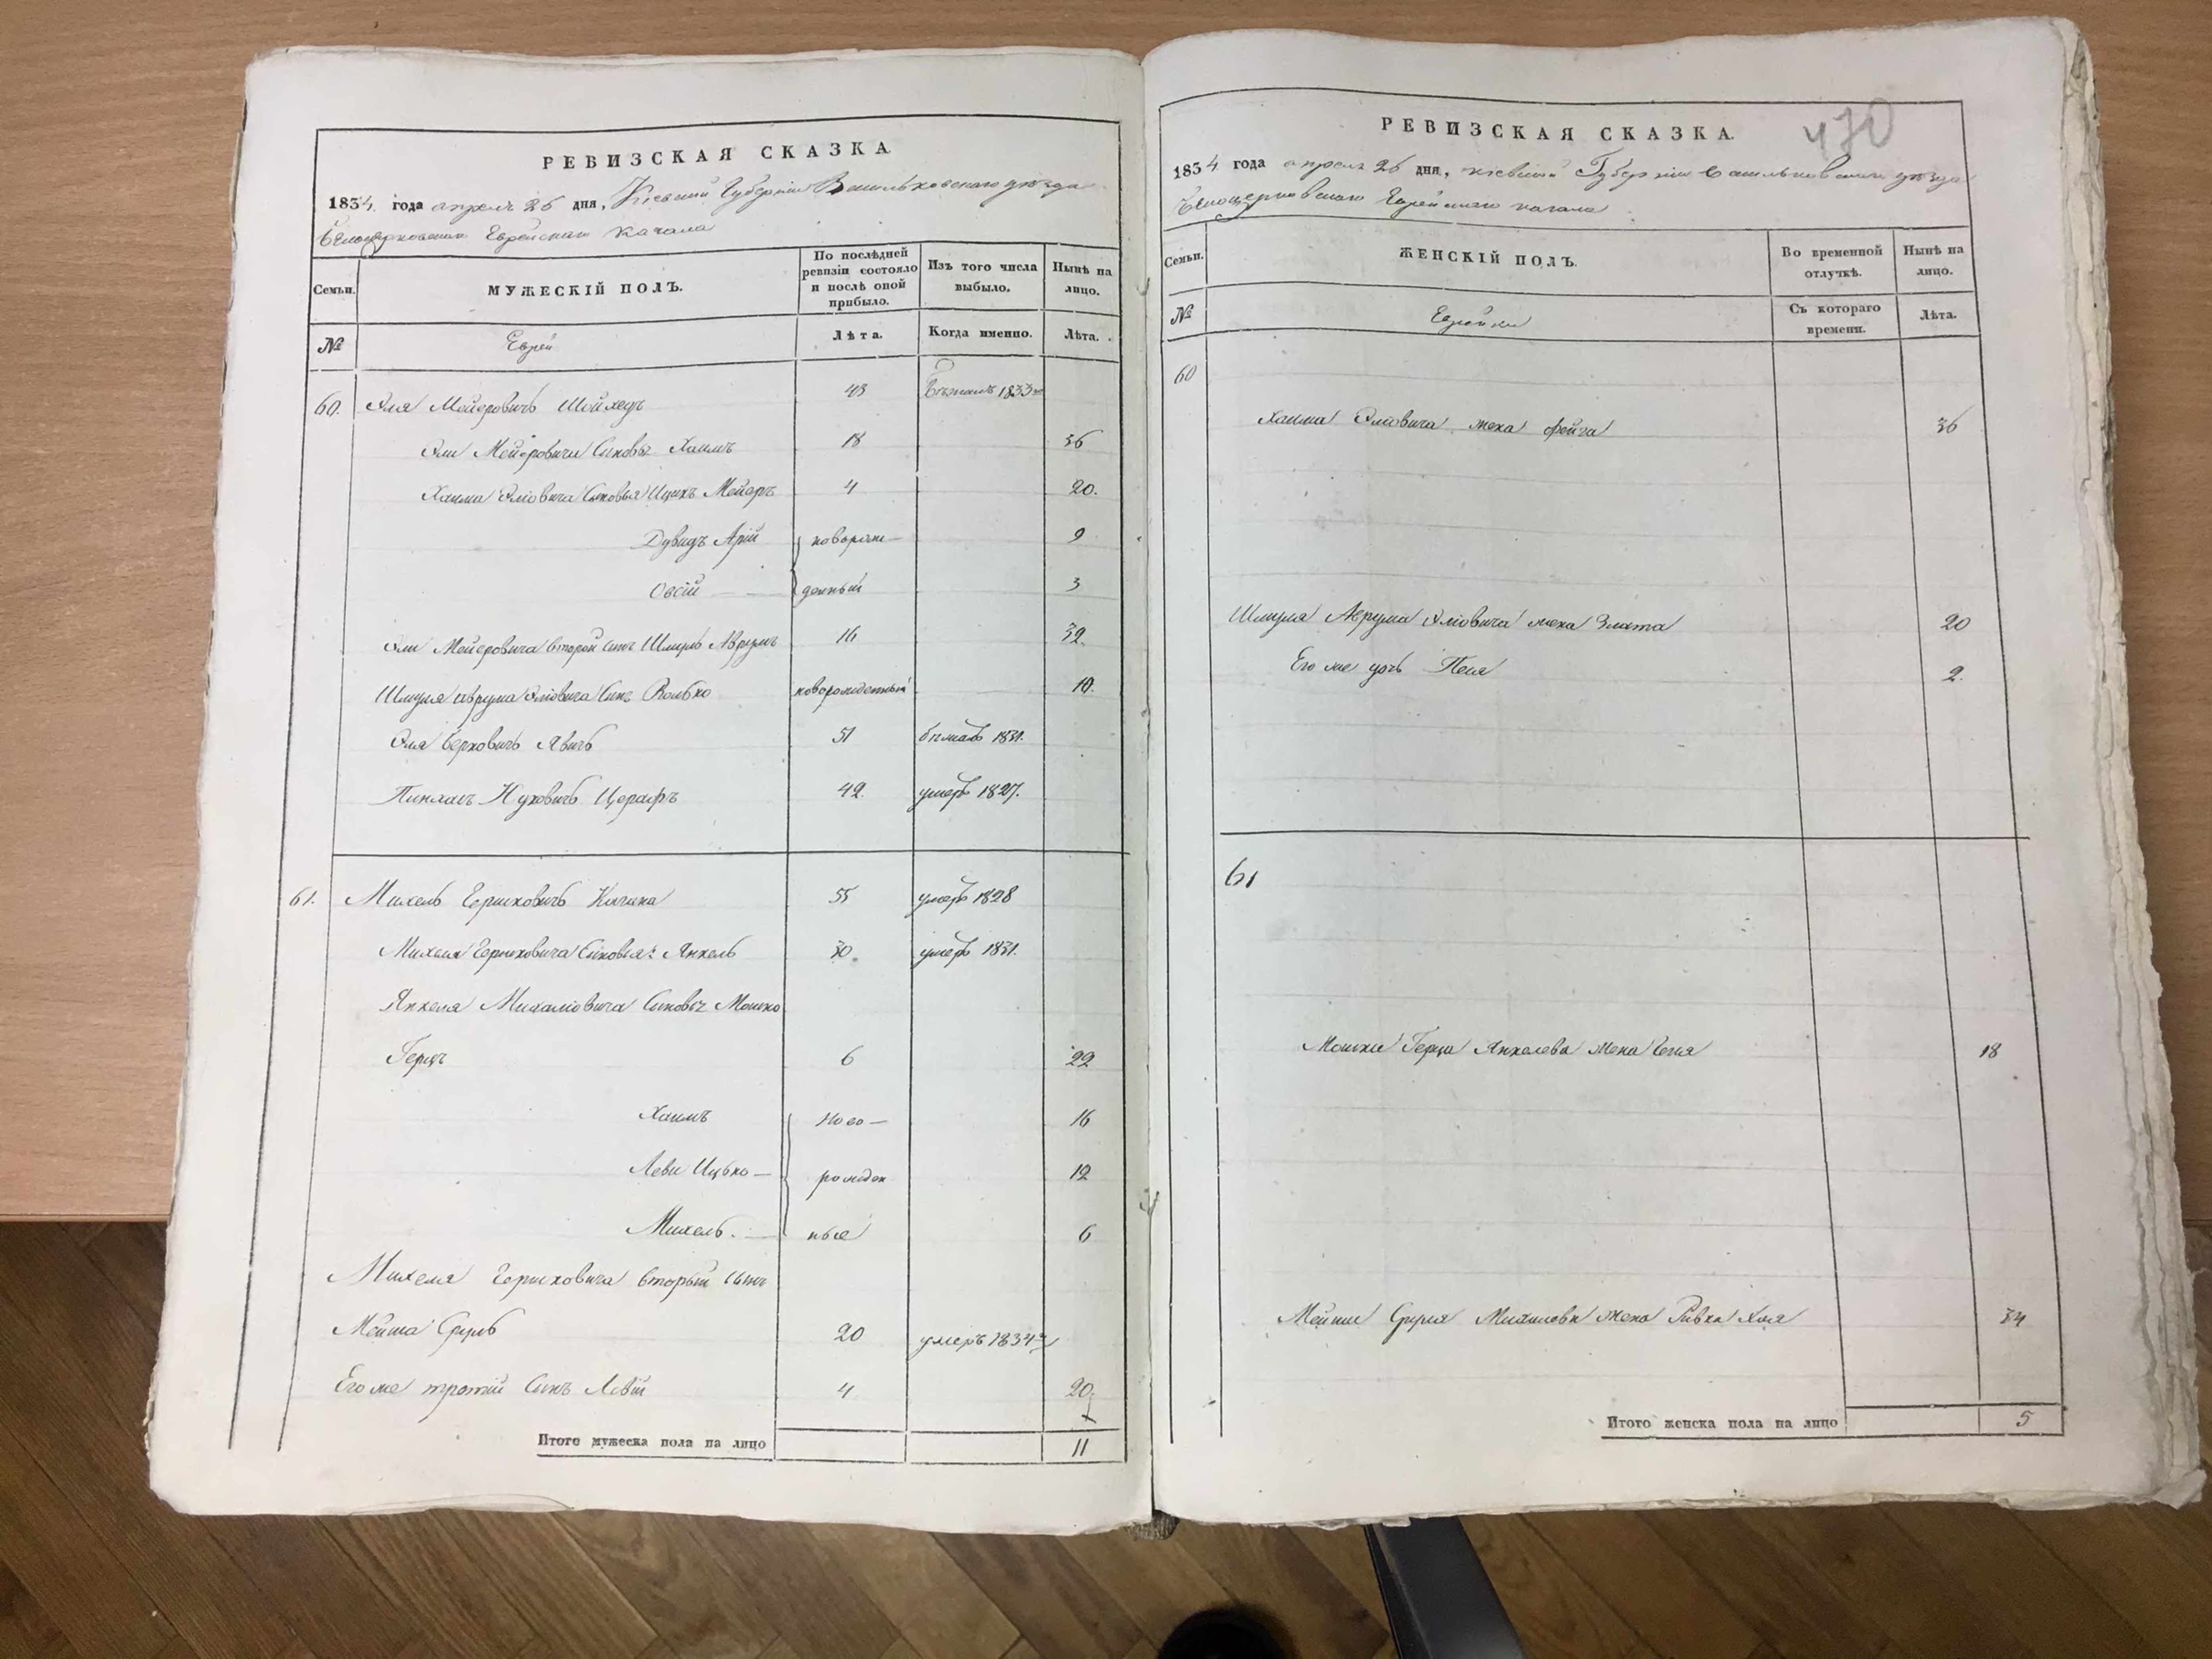 РЕВИЗСКАЯ СКАЗКА
1834 года апреля 26 дня, Кіевской Губерніи Васильковскаго уѣзда
Бѣлоцерковскаго Еврейскаго кагала
Семьи.
МУЖЕСКІЙ ПОЛЪ.
По послѣдней ревизіи состояло и послѣ оной прибыло.
Изъ того числа выбыло.
Нынѣ на лицо.
№
Еврей
Лѣта.
Когда именно.
Лѣта.
60. Эля Мейеровичъ Шойхедъ 43 бѣжалъ 1833
Эли Мейеровича Сыновья Хаимъ 18 36
Хаима Эліовича Сыновья Ицикъ Мейеръ 4 20.
Дувидъ Арій новорож— 9
Овсій — денный 3
Эли Мейеровича второй Сынъ Шмуль Аврумъ 16 32.
Шмуля Аврума Эліовича Сынъ Волько новорожденный 10.
Эля Берковичъ 51 бѣжалъ 1831.
Пинхасъ Нуховичъ Церафъ 42. умеръ 1827.
61. Михель Гершковичъ 55 умеръ 1828
Михеля Гершковича Сыновья: Янкель 30. умеръ 1831.
Янкеля Михаліовича Сыновья Мошко
Герцъ 6 22
Хаимъ ново— 16
Леви Ицько — рожден 12
Михель. — ные 6
Михеля Гершковича вторый сынъ
Мейша Сруль 20 умеръ 1834
Его же третій Сынъ Левій 4 20.
Итого мужеска пола на лицо 11
470
РЕВИЗСКАЯ СКАЗКА.
1834 года апреля 26 дня, Кіевской Губерніи Васильковскаго уѣзда
Бѣлоцерковскаго Еврейскаго кагала
Семьи.
ЖЕНСКІЙ ПОЛЪ.
Во временной отлучкѣ.
Нынѣ на лицо.
№
Еврейки
Съ котораго времени.
Лѣта.
60
Хаима Эліовича жена Фейга 36
Шмуля Аврума Эліовича жена Злата 20
Его же дочь Песя 2.
61
Мошки Герца Янкелева жена 18
Мейши Сруля жена Ривка Хая 34
Итого женска пола на лицо 5